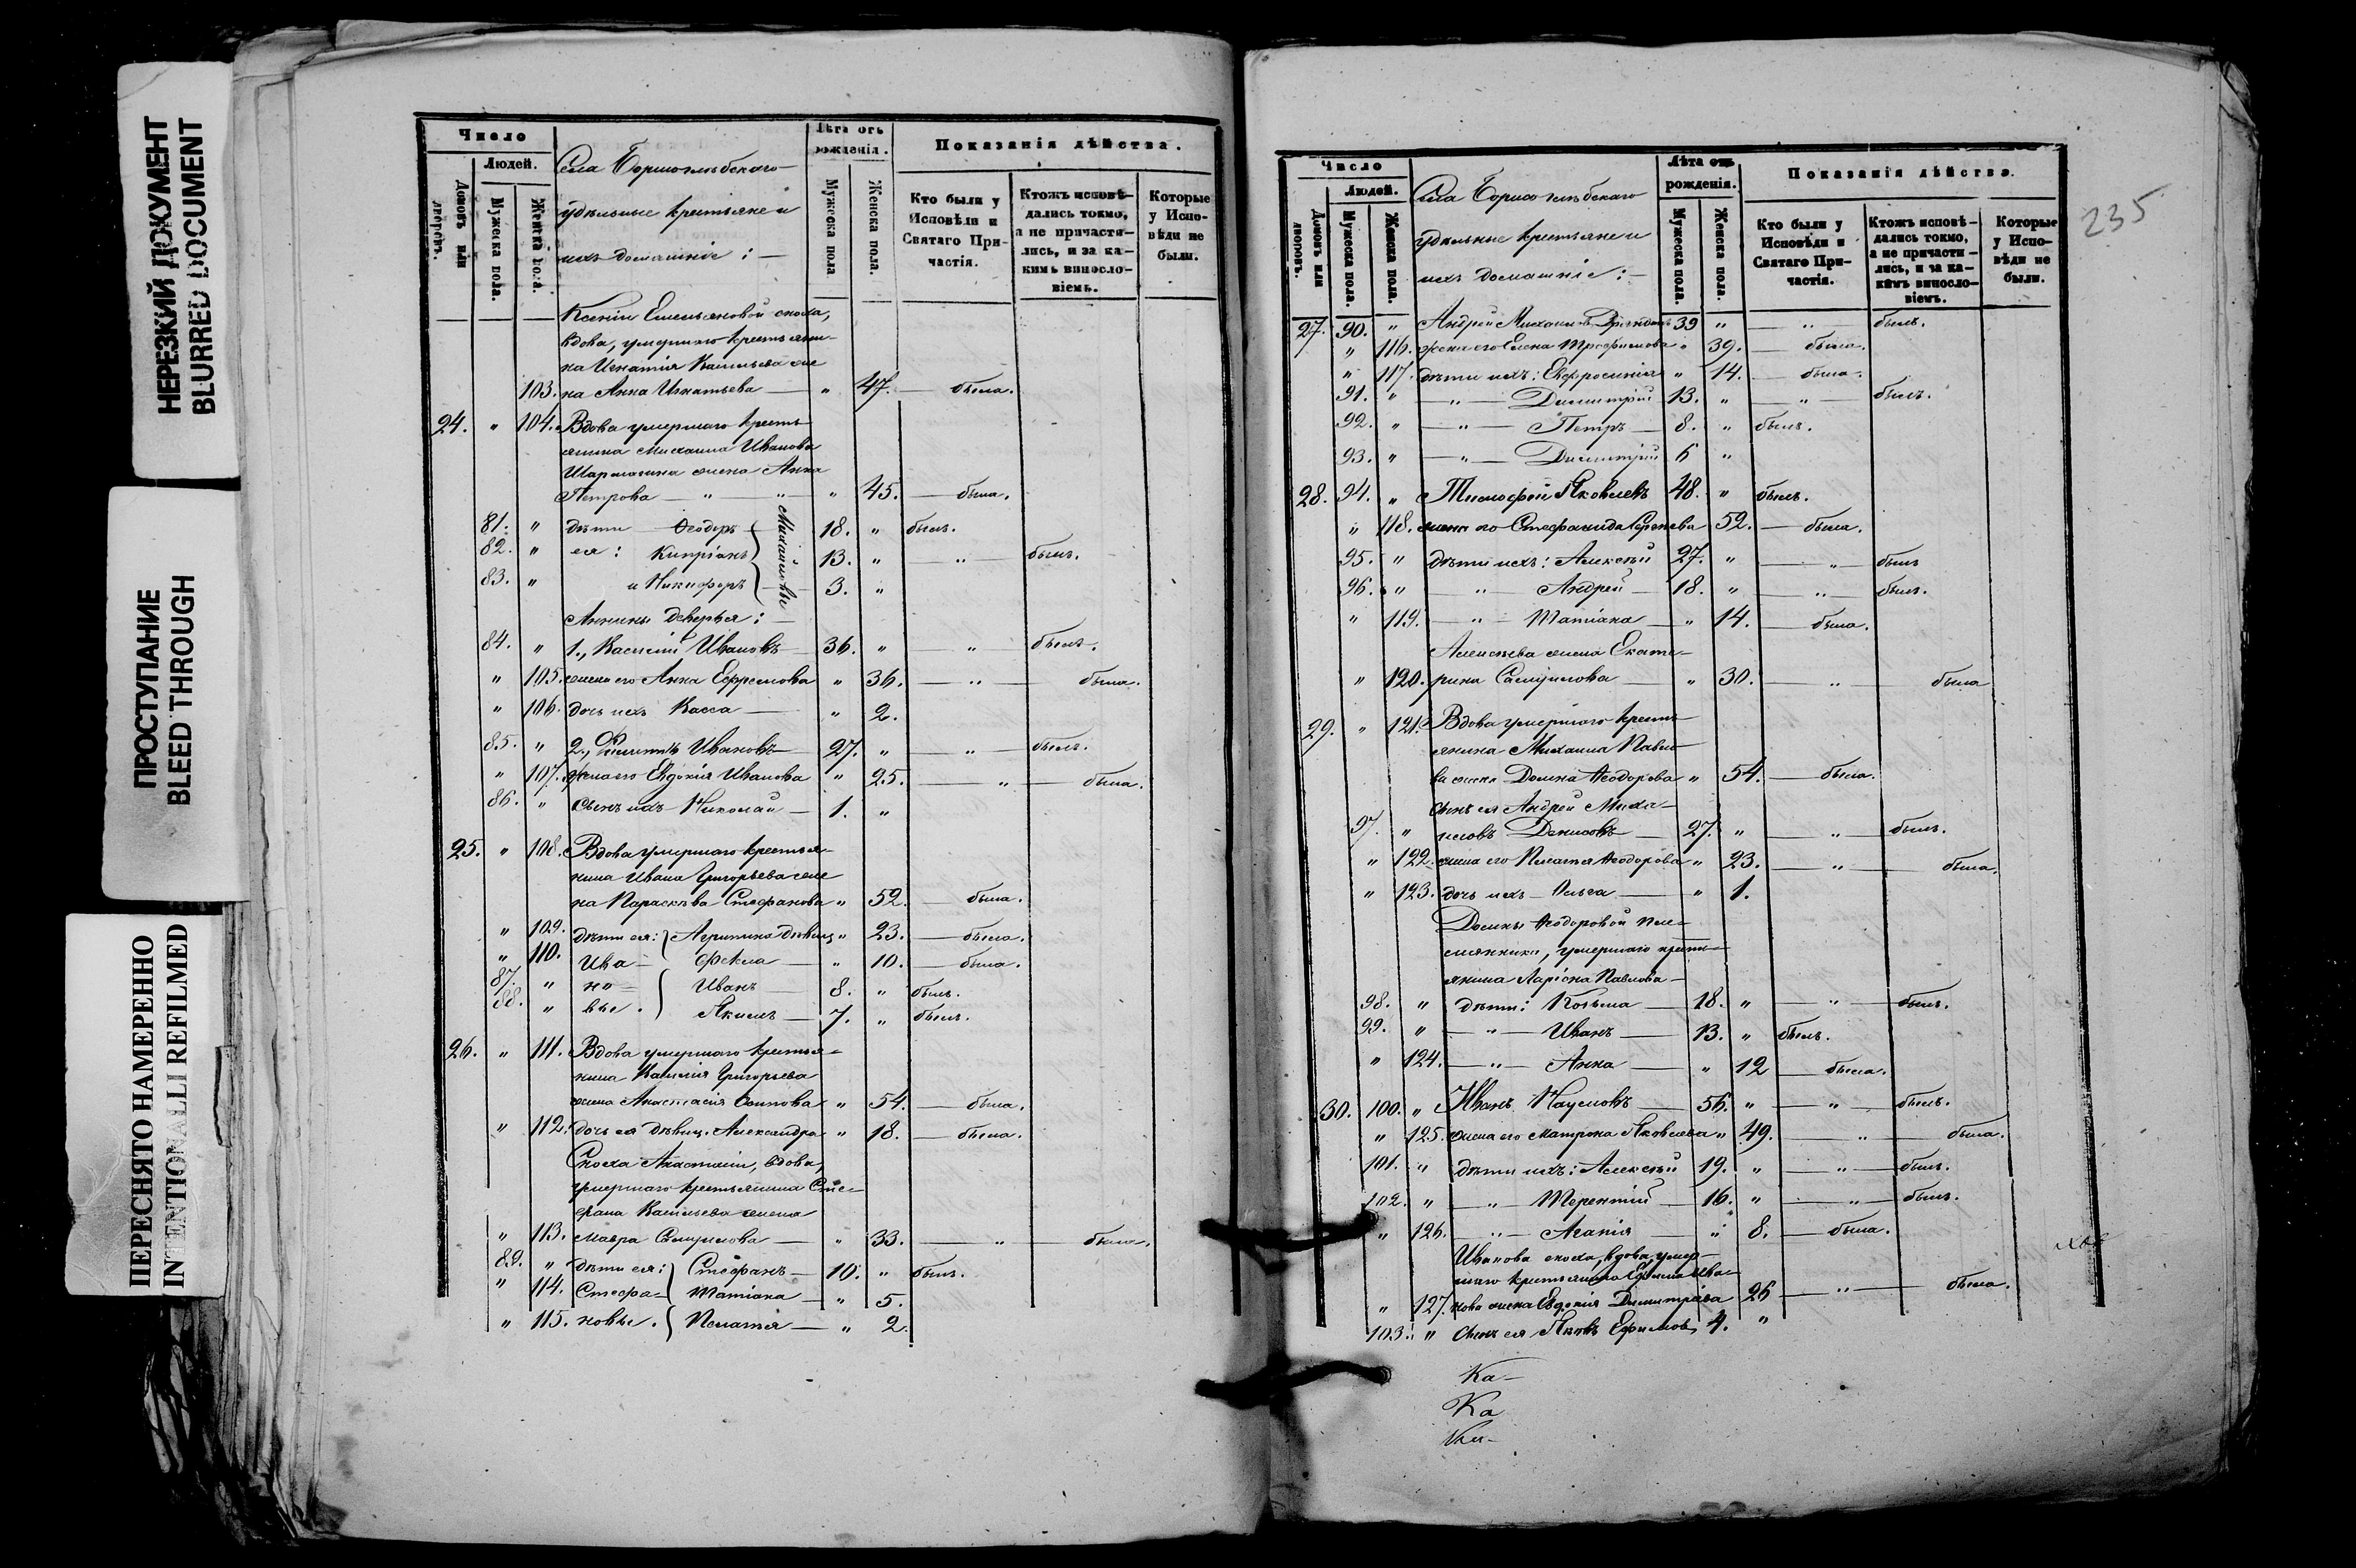 НЕРЕЗКИЙ ДОКУМЕНТ
BLURRED DOCUMENT
ПРОСТУПАНИЕ
BLEED THROUGH
ПЕРЕСНЯТО НАМЕРЕННО
INTENTIONALLI REFILMED
Число
Людей.
Домовъ или дворовъ.
Мужеска пола.
Женска пола.
Села Борисоглѣбскаго
удѣльные крестьяне и
ихъ домашніе : —
Лѣта отъ рожденія.
Мужеска пола
Женска пола.
Показанія дѣйства.
Кто были у Исповѣди и Святаго Причастія.
Ктожъ исповѣдались токмо, а не причастились, и за какимъ винословіемъ.
Которые у Исповѣди не были.
Ксеніи Емельяновой сноха,
вдова, умершаго крестьяни-
на Игнатія Васильева же
103. на Анна Игнатьева — " 47. — была.
24. " 104. Вдова умершаго кресть-
янина Михаила Иванова
жена Анна
Петрова — " — " — " 45. — была.
81. " дѣти Ѳеодоръ 18. " былъ.
82. " ея : Кипріанъ 13. " — " — былъ.
83. " и Никифоръ — 3. "
Михайловы
Аннины деверья : —
84. " 1., Василій Ивановъ 36. " — " — былъ.
" 105. жена его Анна Ефремова " 36. — " — была.
" 106. дочь ихъ Васса — " 2.
85. " 2., Филиппъ Ивановъ — 27. " — " — былъ.
" 107. жена его Евдокія Иванова " 25. — " — была.
86. " Сынъ ихъ Николай — 1. "
25. " 108. Вдова умершаго крестья-
нина Ивана Григорьева же
на Параскева Стефанова " 52. — была.
" 109. Дѣти ея: Агрипина дѣвица " 23. — была.
" 110. Ива — Ѳекла — " 10. — была.
87. " но — Иванъ — 8. " былъ.
88. " вы. Якимъ — 7. " былъ.
26. " 111. Вдова умершаго крестья-
нина Василія Григорьева
жена Анастасія Осипова " 54. — была.
" 112. дочь ея дѣвиц. Александра " 18. — была.
Сноха Анастасіи, вдова,
умершаго крестьянина Сте-
фана Васильева жена
" 113. Мавра Самуилова — " 33. — " — была.
89. " дѣти ея: Стефанъ — 10. " былъ.
" 114. Стефа- Татіана — " 5.
" 115. новы. Пелагія — " 2.
235
Число
Людей.
Домовъ или дворовъ.
Мужеска пола.
Женска пола.
Села Борисоглѣбскаго
удѣльные крестьяне и
ихъ домашніе : —
Лѣта отъ рожденія.
Мужеска пола.
Женска пола.
Показанія дѣйства.
Кто были у Исповѣди и Святаго Причастія.
Ктожъ исповѣдались токмо, а не причастились, и за какимъ винословіемъ.
Которые у Исповѣди не были.
27. 90. " Андрей Михаиловъ 39 " — " — былъ.
" 116. жена его Елена Трофимова " 39. — была.
" 117. дѣти ихъ: Евфросинія " 14. — была.
91. " — " — Димитрій 13. " — " — былъ.
92. " — " — Петръ — 8. " былъ.
93. " — " — Димитрій 6 "
28. 94. " Тимофей Яковлевъ 48. " былъ.
" 118. жена его Стефанида Сергѣева 52. — была.
95. " дѣти ихъ: Алексѣй 27. " — " — былъ
96. " — " — Андрей — 18. " — " — былъ.
" 119. — " — Татіана — " 14. — была.
Алексѣева жена Екате-
" 120. рина Самуилова — " 30. — " — была
29. " 121. Вдова умершаго кресть-
янина Михаила Павло-
ва жена Домна Ѳеодорова " 54. — была.
Сынъ ея Андрей Миха-
97. " иловъ Денисовъ — 27. " — " — былъ.
" 122. жена его Пелагія Ѳеодорова " 23. — " — была.
" 123. дочь ихъ — Ольга — " 1.
Домны Ѳеодоровой пле-
мянники, умершаго кресть-
янина Ларіона Павлова —
98. " дѣти: Козьма — 18. " — " — былъ.
99. " — " — Иванъ — 13. " былъ.
" 124. — " — Анна — " 12 — была.
30. 100. " Иванъ Наумовъ 56. " — " — былъ.
" 125. жена его Матрона Яковлева " 49. — " — была.
101. " дѣти ихъ: Алексѣй 19. " — " — былъ.
102. " — " — Терентій — 16. " — " — былъ.
" 126. — " — Агапія — " 8. — была.
Иванова сноха, вдова умер-
шаго крестьянина Ефима Ива-
" 127. нова жена Евдокія Димитріева 26 — " — была.
103. " Сынъ ея Яковъ Ефимовъ 4. "
Ка-
Ка